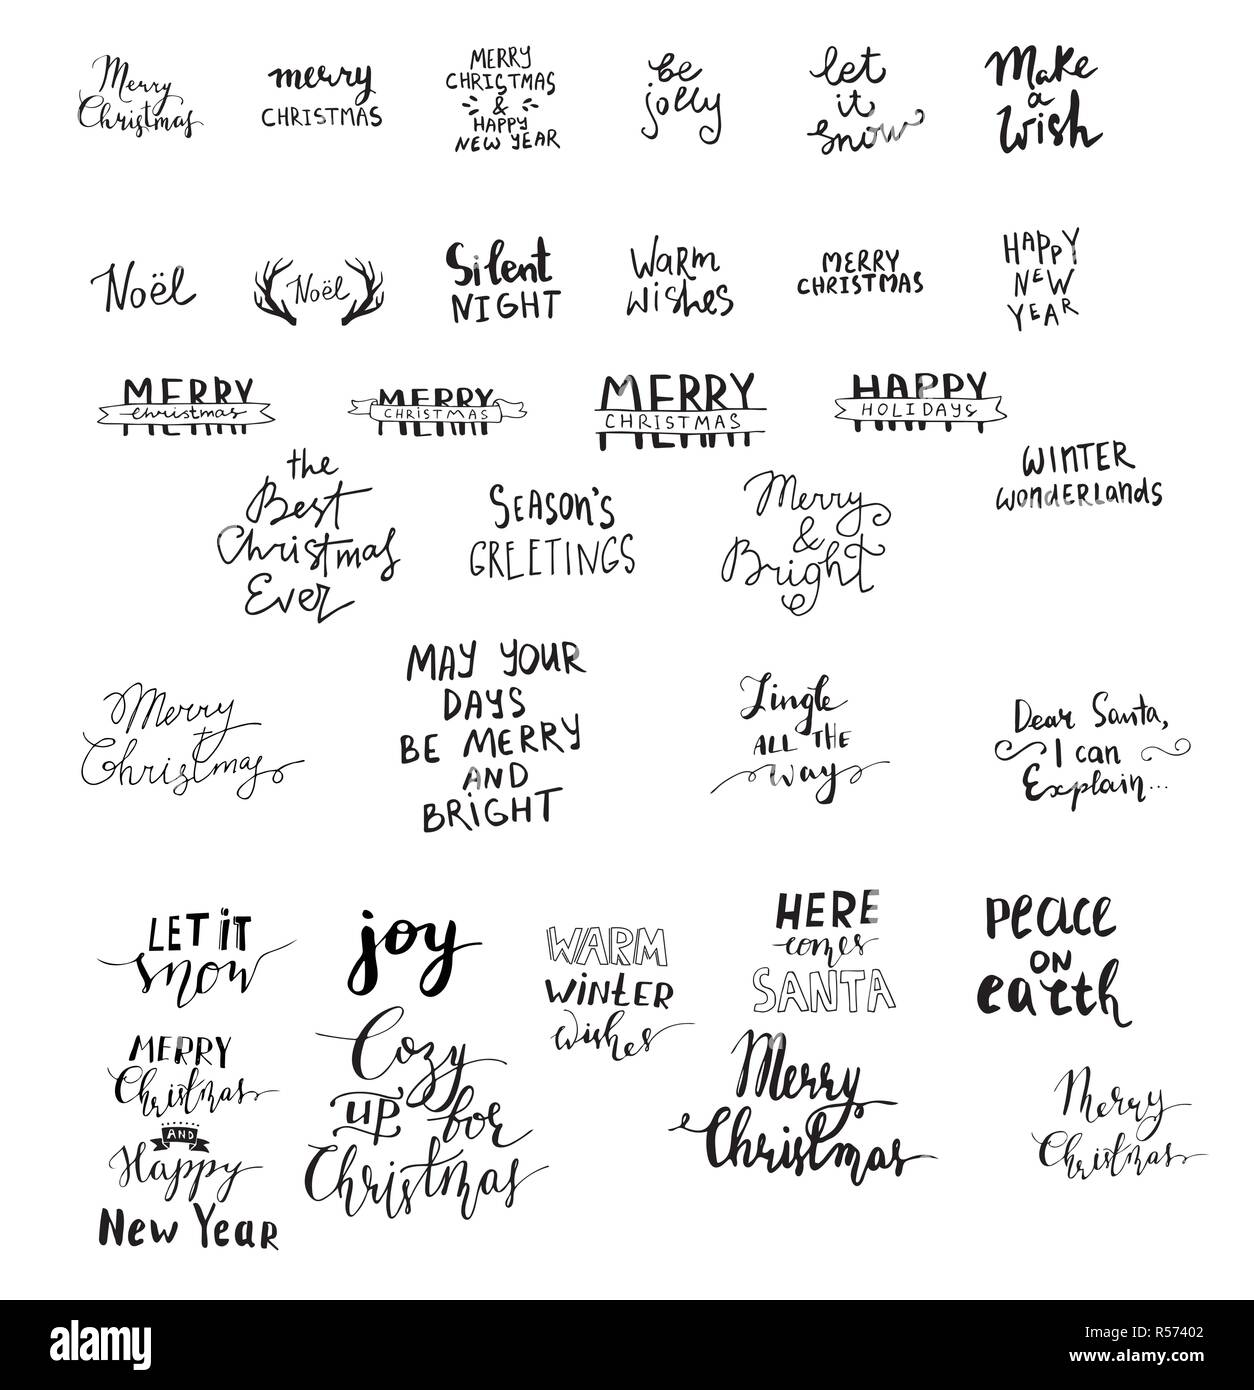 Merry
Christmas
merry
CHRISTMAS
MERRY
CHRISTMAS
&
HAPPY
NEW YEAR
be
jolly
let
it
snow
Make
a
Wish
Noël
Noël
Silent
NIGHT
WARM
wishes
MERRY
CHRISTMAS
HAPPY
NEW
YEAR
MERRY
christmas
MERRY
CHRISTMAS
MERRY
CHRISTMAS
HAPPY
HOLIDAYS
the
Best
Christmas
Ever
SEASON'S
GREETINGS
Merry
&
Bright
WINTER
WONDERLANDS
Merry
Christmas
MAY YOUR
DAYS
BE MERRY
AND
BRIGHT
Jingle
ALL THE
way
Dear Santa,
I can
Explain...
LET IT
snow
joy
WARM
WINTER
wishes
HERE
comes
SANTA
PEACE
ON
earth
MERRY
Christmas
AND
Happy
New Year
Cozy
up for
Christmas
Merry
Christmas
Merry
Christmas
alamy
Image ID: R57402
www.alamy.com